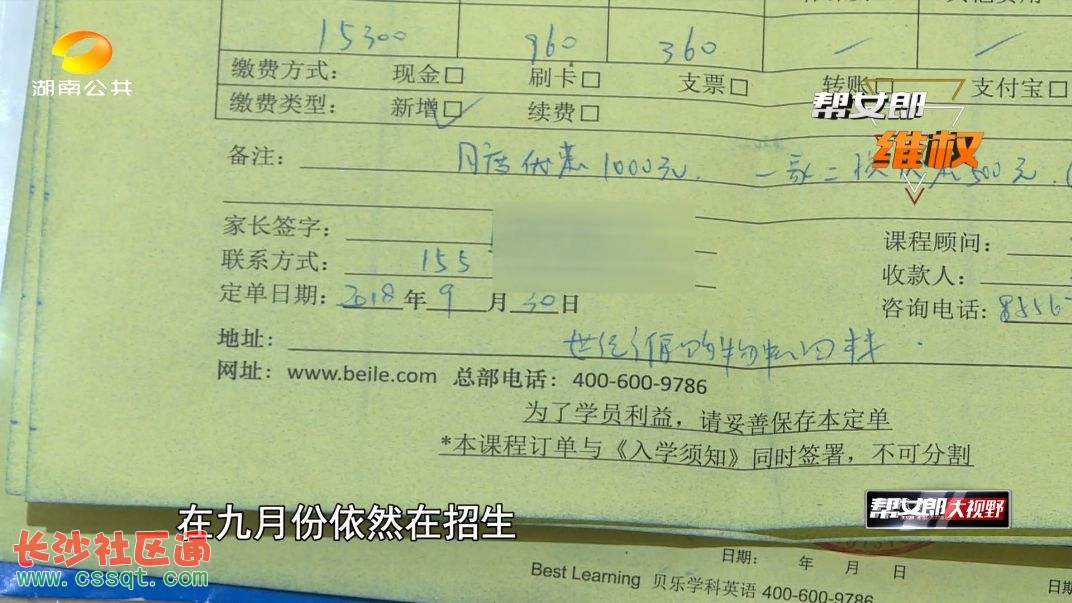 湖南公共
15300 960 360 / /
缴费方式: 现金□ 刷卡□ 支票□ 转账□ 支付宝□
缴费类型: 新增□✓ 续费□
帮女郎
维权
备注: 月度优惠1000元. 一家二 500元.
家长签字:
课程顾问:
联系方式: 155
收款人:
定单日期: 2018年9月30日
咨询电话:
地址:
网址: www.beile.com 总部电话: 400-600-9786
为了学员利益，请妥善保存本定单
*本课程订单与《入学须知》同时签署，不可分割
帮女郎大视野
在九月份依然在招生
长沙社区通
www.cssqt.com
日期: 年 月 日
日期
Best Learning 贝乐学科英语 400-600-9786